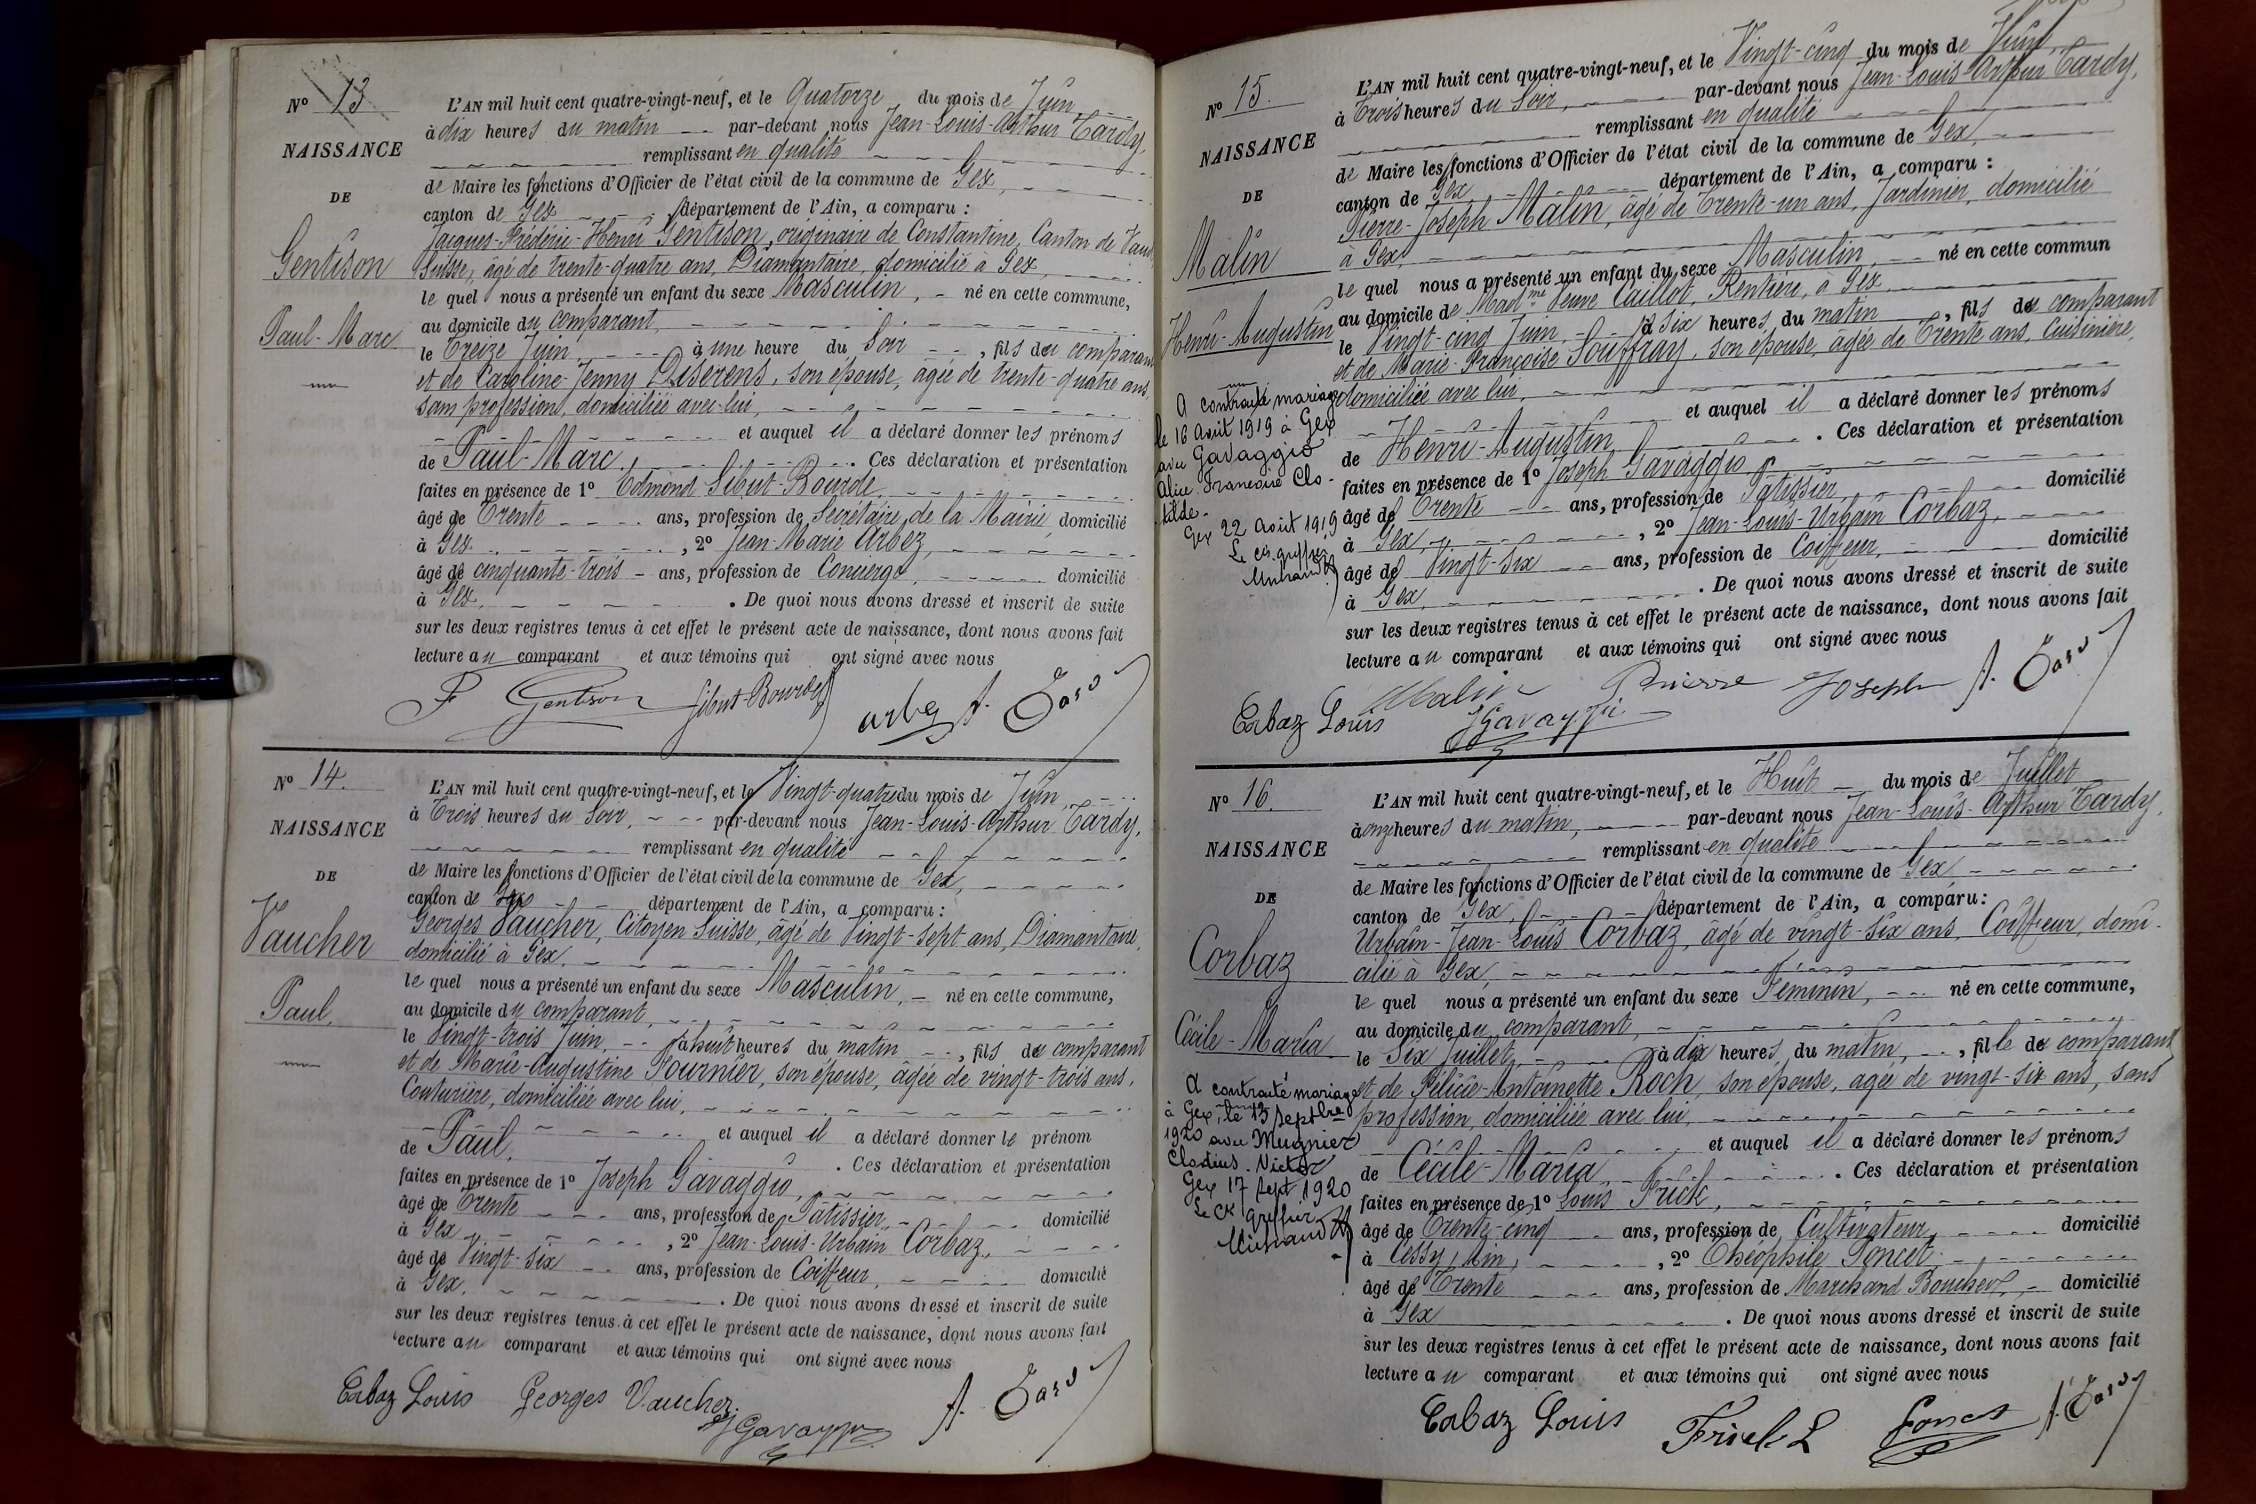 Nº 13
NAISSANCE
DE
Gentison
Paul-Marc
L'AN mil huit cent quatre-vingt-neuf, et le Quatorze du mois de Juin,
à dix heures du matin par-devant nous Jean-Louis-Arthur Tardy,
remplissant en qualité
de Maire les fonctions d'Officier de l'état civil de la commune de Gex,
canton de Gex département de l'Ain, a comparu :
Jacques-Frédéric-Henri Gentison, originaire de Constantine, Canton de Vaud
Suisse, âgé de trente-quatre ans, Diamantaire, domicilié à Gex,
le quel nous a présenté un enfant du sexe Masculin, né en cette commune,
au domicile du comparant,
le Treize Juin, à une heure du Soir, fils du comparant
et de Caroline-Jenny Diserens, son épouse, âgée de trente-quatre ans,
sans profession, domiciliée avec lui,
et auquel il a déclaré donner les prénoms
de Paul-Marc. Ces déclaration et présentation
faites en présence de 1º Edmond Sibut-Bourde,
âgé de Trente ans, profession de Secrétaire de la Mairie domicilié
à Gex, 2º Jean-Marie Arbez,
âgé de cinquante-trois ans, profession de Concierge, domicilié
à Gex. De quoi nous avons dressé et inscrit de suite
sur les deux registres tenus à cet effet le présent acte de naissance, dont nous avons fait
lecture au comparant et aux témoins qui ont signé avec nous
F Gentison Sibut-Bourde arbez A. Tardy
Nº 14.
NAISSANCE
DE
Vaucher
Paul.
L'AN mil huit cent quatre-vingt-neuf, et le Vingt-quatre du mois de Juin,
à Trois heures du Soir, par-devant nous Jean-Louis-Arthur Tardy,
remplissant en qualité
de Maire les fonctions d'Officier de l'état civil de la commune de Gex,
canton de Gex département de l'Ain, a comparu :
Georges Vaucher, Citoyen Suisse, âgé de Vingt-sept ans, Diamantaire,
domicilié à Gex,
le quel nous a présenté un enfant du sexe Masculin, né en cette commune,
au domicile du comparant,
le Vingt-trois Juin, à huit heures du matin, fils du comparant
et de Marie-Augustine Fournier, son épouse, âgée de vingt-trois ans,
Couturière, domiciliée avec lui,
et auquel il a déclaré donner le prénom
de Paul. Ces déclaration et présentation
faites en présence de 1º Joseph Gavaggio,
âgé de Trente ans, profession de Pâtissier, domicilié
à Gex, 2º Jean-Louis-Urbain Corbaz,
âgé de Vingt-six ans, profession de Coiffeur, domicilié
à Gex. De quoi nous avons dressé et inscrit de suite
sur les deux registres tenus à cet effet le présent acte de naissance, dont nous avons fait
lecture au comparant et aux témoins qui ont signé avec nous
Corbaz Louis Georges Vaucher. A. Tardy
J Gavaggio
Nº 15.
NAISSANCE
DE
Malin
Henri-Augustin
A contracté mariage
le 16 Août 1919 à Gex
avec Gavaggio
Alice Françoise Clo-
tilde.
Gex 22 Août 1919
Le cis greffier
L'AN mil huit cent quatre-vingt-neuf, et le Vingt-cinq du mois de Juin,
à Trois heures du Soir, par-devant nous Jean-Louis-Arthur Tardy,
remplissant en qualité
de Maire les fonctions d'Officier de l'état civil de la commune de Gex,
canton de Gex département de l'Ain, a comparu :
Pierre-Joseph Malin, âgé de Trente-un ans, Jardinier, domicilié
à Gex,
le quel nous a présenté un enfant du sexe Masculin, né en cette commun
au domicile de Mad.me Veuve Caillot, Rentière, à Gex,
le Vingt-cinq Juin, à Six heures du matin, fils du comparant
et de Marie-Françoise Souffray, son épouse, âgée de Trente ans, Cuisinière,
domiciliée avec lui,
et auquel il a déclaré donner les prénoms
de Henri-Augustin. Ces déclaration et présentation
faites en présence de 1º Joseph Gavaggio
âgé de Trente ans, profession de Pâtissier, domicilié
à Gex, 2º Jean-Louis-Urbain Corbaz,
âgé de Vingt-six ans, profession de Coiffeur, domicilié
à Gex. De quoi nous avons dressé et inscrit de suite
sur les deux registres tenus à cet effet le présent acte de naissance, dont nous avons fait
lecture au comparant et aux témoins qui ont signé avec nous
Malin Pierre Joseph A. Tardy
Corbaz Louis J Gavaggio
Nº 16.
NAISSANCE
DE
Corbaz
Cécile-Maria
A contracté mariage
à Gex, le 13 Septbre
1920 avec Mugnier
Claudius-Victor
Gex 17 Sept 1920
Le Ck Greffier
L'AN mil huit cent quatre-vingt-neuf, et le Huit du mois de Juillet
à onze heures du matin, par-devant nous Jean-Louis-Arthur Tardy,
remplissant en qualité
de Maire les fonctions d'Officier de l'état civil de la commune de Gex
canton de Gex, département de l'Ain, a comparu :
Urbain-Jean-Louis Corbaz, âgé de vingt-six ans, Coiffeur, domi-
cilié à Gex,
le quel nous a présenté un enfant du sexe Féminin, né en cette commune,
au domicile du comparant,
le Six Juillet, à dix heures du matin, fille du comparant
et de Félicie-Antoinette Roch, son épouse, âgée de vingt-six ans, sans
profession, domiciliée avec lui,
et auquel il a déclaré donner les prénoms
de Cécile-Maria, Ces déclaration et présentation
faites en présence de 1º Louis Frick,
âgé de Trente-cinq ans, profession de Cultivateur domicilié
à Cessy, Ain, 2º Théophile Poncet,
âgé de Trente ans, profession de Marchand Boucher, domicilié
à Gex. De quoi nous avons dressé et inscrit de suite
sur les deux registres tenus à cet effet le présent acte de naissance, dont nous avons fait
lecture au comparant et aux témoins qui ont signé avec nous
Corbaz Louis Frick L Poncet A. Tardy